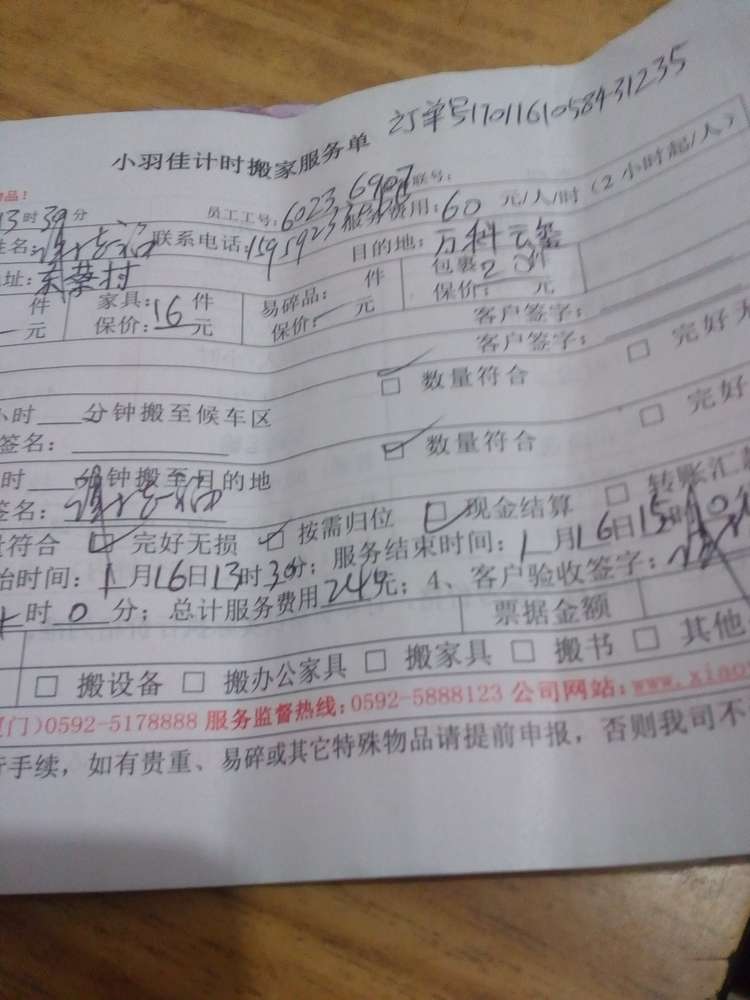 订单号1701161058431235
小羽佳计时搬家服务单
物品:
13时30分 员工工号:6023 6907 联号:
姓名: 联系电话: 服务费用:60元/人/时(2小时起/人)
地址:东蔡村 目的地:万科云玺
件 家具:16件 易碎品: 件 包裹:2件
元 保价: 元 保价: 元 保价: 元
客户签字:
客户签字:
数量符合 完好无
小时 分钟搬至候车区
签名: 数量符合 完好
时 分钟搬至目的地
签名: 现金结算 转账汇
量符合 完好无损 按需归位 服务结束时间:1月16日15时30分
始时间:1月16日13时30分; 4、客户验收签字:
4时0分; 总计服务费用244元; 票据金额
搬设备 搬办公家具 搬家具 搬书 其他
门)0592-5178888 服务监督热线:0592-5888123 公司网站:www.xiao
行手续,如有贵重、易碎或其它特殊物品请提前申报,否则我司不